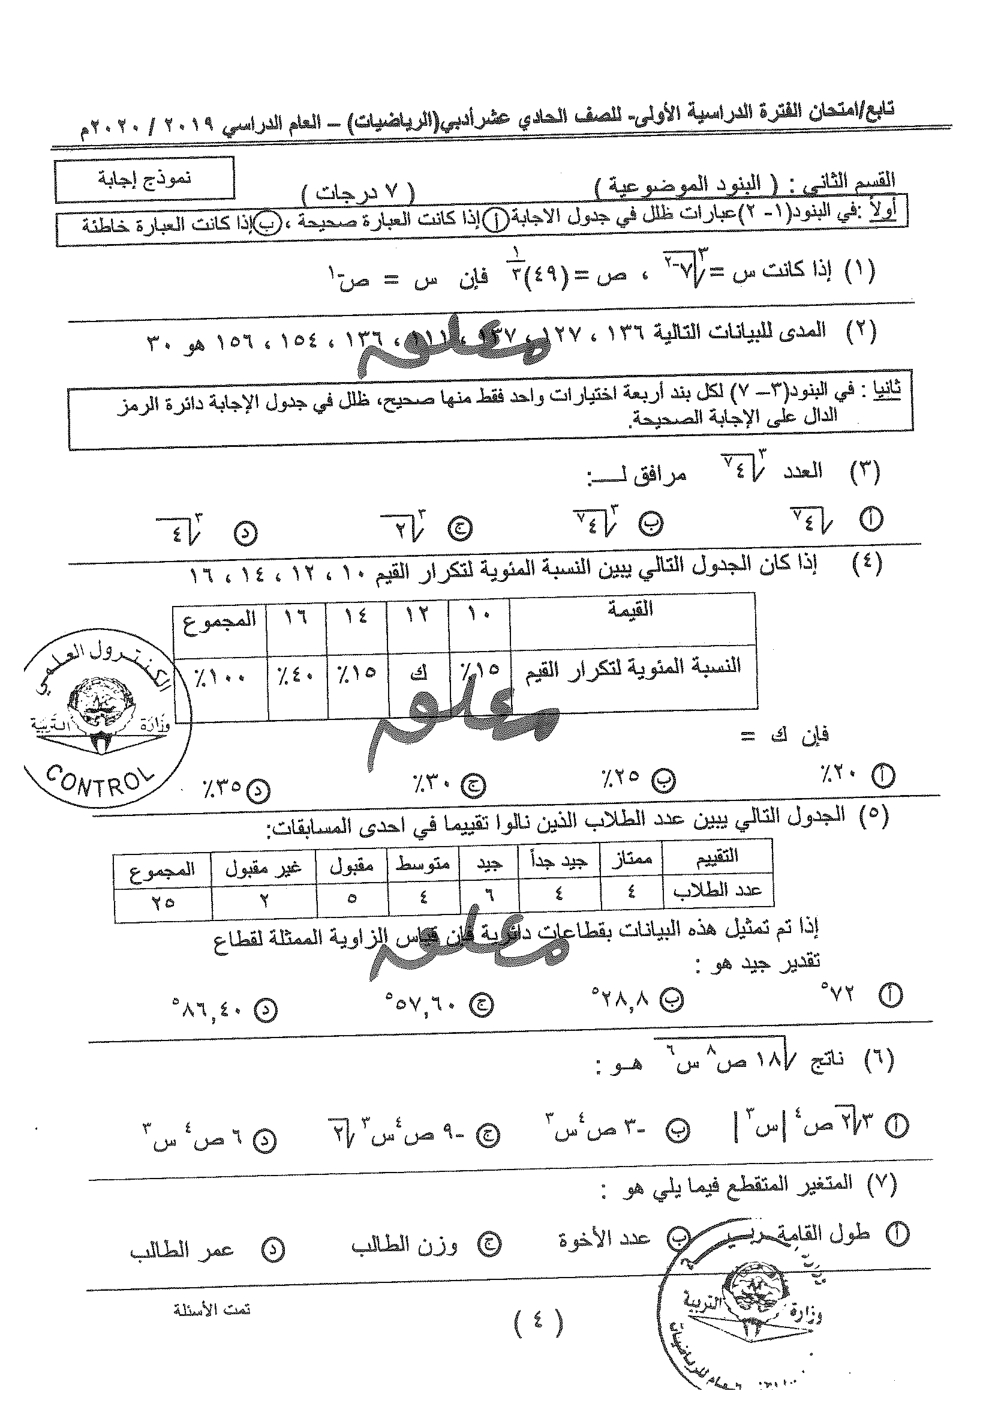 تابع/امتحان الفترة الدراسية الأولى- للصف الحادي عشرأدبي(الرياضيات) – العام الدراسي ٢٠١٩ / ٢٠٢٠م
نموذج إجابة
القسم الثاني : ( البنود الموضوعية ) ( ٧ درجات )
أولاً :في البنود(١- ٢)عبارات ظلل في جدول الاجابة أ إذا كانت العبارة صحيحة ، ب إذا كانت العبارة خاطئة
(١) إذا كانت س = ∛٧⁻² ، ص = (٤٩)^(١/٣) فإن س = ص⁻¹
(٢) المدى للبيانات التالية ١٣٦ ، ١٢٧ ، ١٣٧ ، ١١١ ، ١٣٦ ، ١٥٤ ، ١٥٦ هو ٣٠
معلق
ثانيا : في البنود(٣– ٧) لكل بند أربعة اختيارات واحد فقط منها صحيح، ظلل في جدول الإجابة دائرة الرمز
الدال على الإجابة الصحيحة.
(٣) العدد ∛٤⁷ مرافق لـــ:
أ √٤⁷ ب ∛٤⁷ ج ∛٢ د ∛٤
(٤) إذا كان الجدول التالي يبين النسبة المئوية لتكرار القيم ١٠ ، ١٢ ، ١٤ ، ١٦
القيمة ١٠ ١٢ ١٤ ١٦ المجموع
النسبة المئوية لتكرار القيم ١٥٪ ك ١٥٪ ٤٠٪ ١٠٠٪
معلق
فإن ك =
أ ٢٠٪ ب ٢٥٪ ج ٣٠٪ د ٣٥٪
الكنترول العلمي
وزارة التربية
CONTROL
(٥) الجدول التالي يبين عدد الطلاب الذين نالوا تقييما في احدى المسابقات:
التقييم ممتاز جيد جداً جيد متوسط مقبول غير مقبول المجموع
عدد الطلاب ٤ ٤ ٦ ٤ ٥ ٢ ٢٥
إذا تم تمثيل هذه البيانات بقطاعات دائرية فإن قياس الزاوية الممثلة لقطاع
معلق
تقدير جيد هو :
أ ٧٢° ب ٢٨,٨° ج ٥٧,٦٠° د ٨٦,٤٠°
(٦) ناتج √(١٨ ص⁸ س⁶) هـو :
أ ٣√٢ ص⁴ |س³| ب -٣ ص⁴س³ ج -٩ ص⁴س³ √٢ د ٦ ص⁴ س³
(٧) المتغير المتقطع فيما يلي هو :
أ طول القامة ب عدد الأخوة ج وزن الطالب د عمر الطالب
تمت الأسئلة
( ٤ )
وزارة التربية